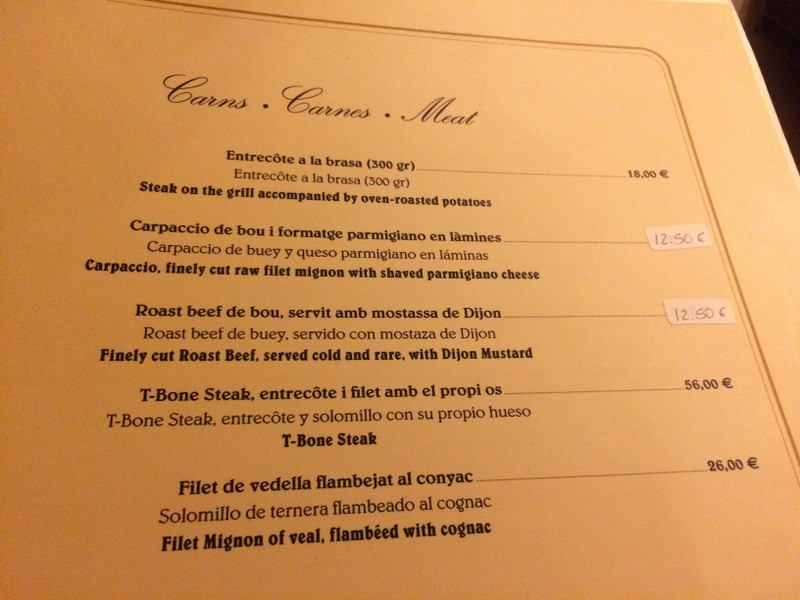 Carns . Carnes . Meat
Entrecôte a la brasa (300 gr) 18,00 €
Entrecôte a la brasa (300 gr)
Steak on the grill accompanied by oven-roasted potatoes
Carpaccio de bou i formatge parmigiano en làmines 12.50 €
Carpaccio de buey y queso parmigiano en láminas
Carpaccio, finely cut raw filet mignon with shaved parmigiano cheese
Roast beef de bou, servit amb mostassa de Dijon 12.50 €
Roast beef de buey, servido con mostaza de Dijon
Finely cut Roast Beef, served cold and rare, with Dijon Mustard
T-Bone Steak, entrecôte i filet amb el propi os 56,00 €
T-Bone Steak, entrecôte y solomillo con su propio hueso
T-Bone Steak
Filet de vedella flambejat al conyac 26,00 €
Solomillo de ternera flambeado al cognac
Filet Mignon of veal, flambéed with cognac